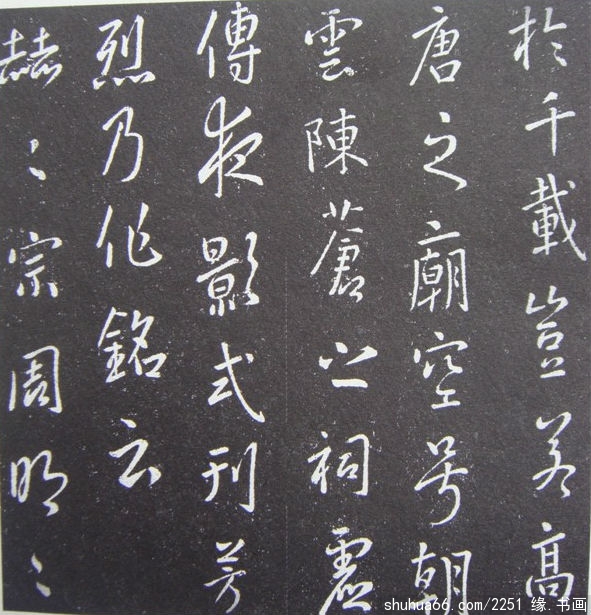 於千載豈若高
唐之廟空号朝
雲陳蒼之祠虛
傳夜影式刊芳
烈乃作銘云
赫〻宗周明〻
shuhua66.com/2251 缘.书画